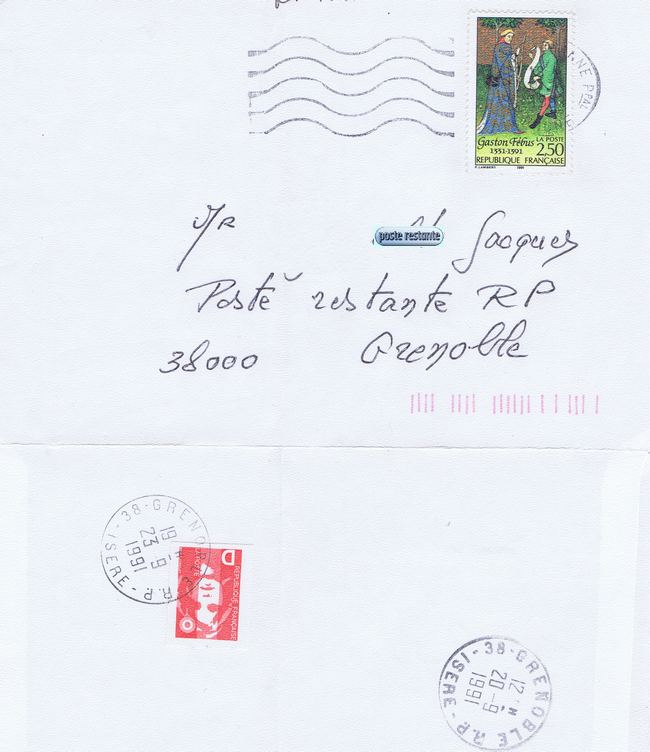 NNE PPAL
Gaston Fébus LA POSTE
1331-1391 2,50
REPUBLIQUE FRANÇAISE
Mr poste restante Jacques
Poste restante RP
38000 Grenoble
38-GRENOBLE R.P.-ISERE-
19 H
23-9
1991
D
REPUBLIQUE FRANÇAISE
38-GRENOBLE R.P.-ISERE-
12 H
20-9
1991